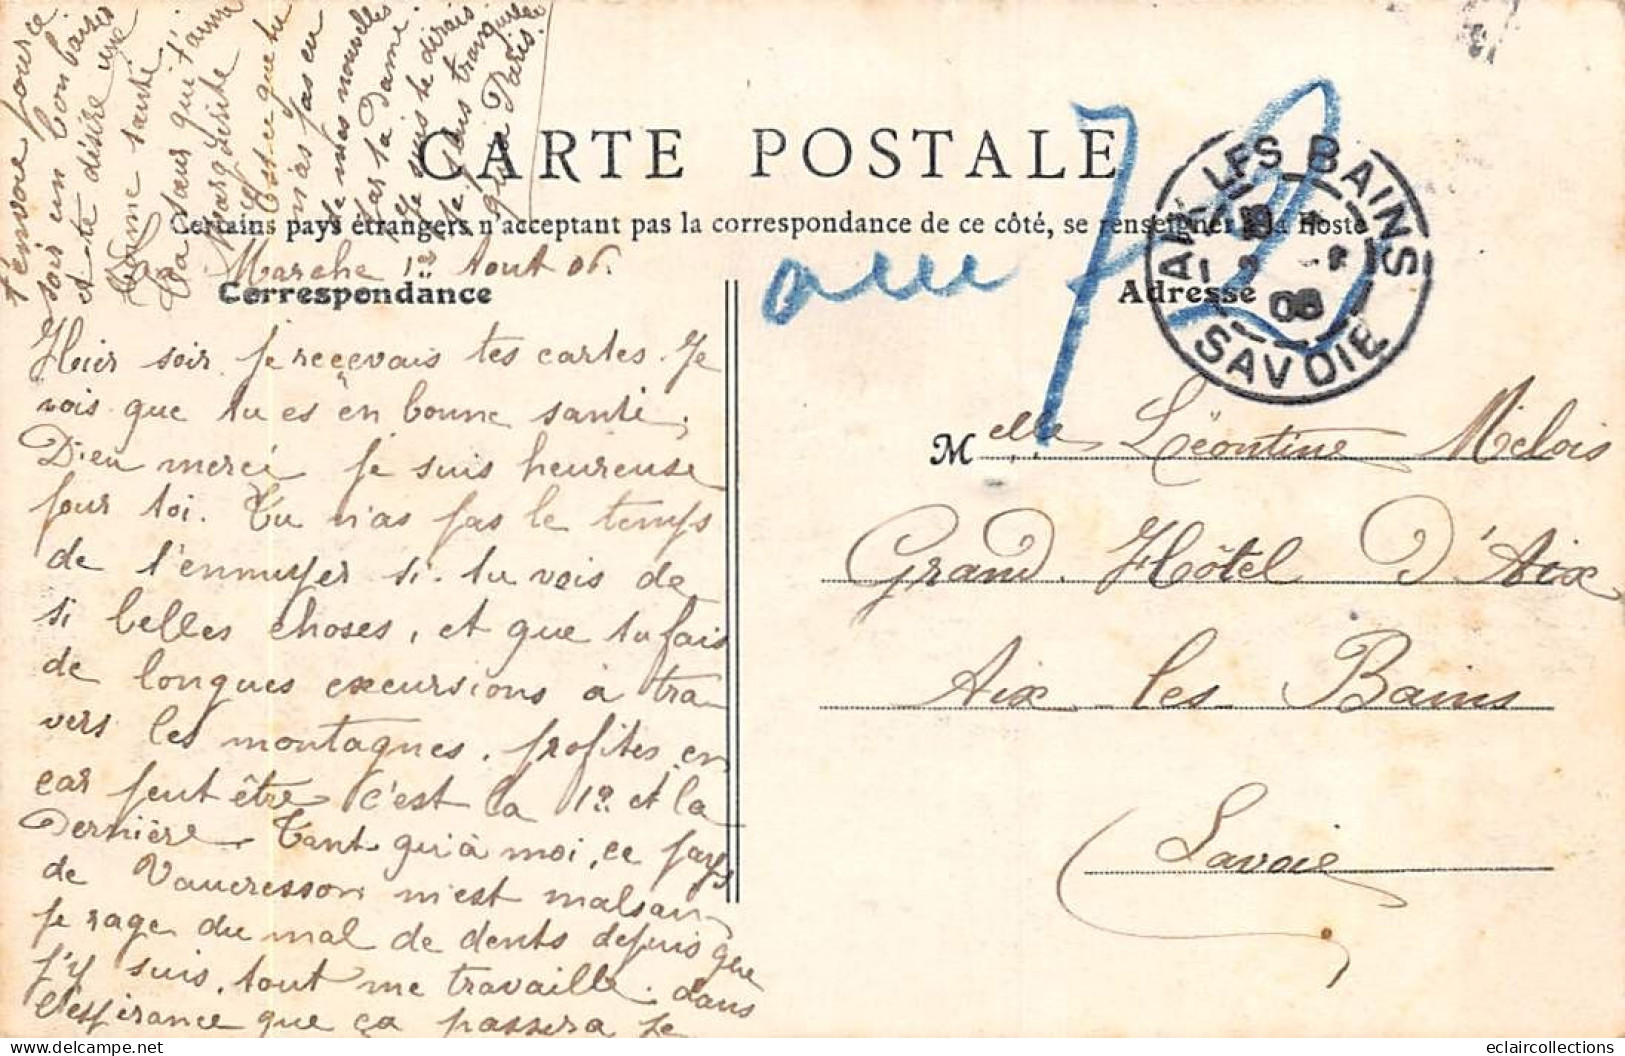 CARTE POSTALE
Certains pays étrangers n'acceptant pas la correspondance de ce côté, se renseigner à la Poste
La Marche 1er Aout 06.
Correspondance
Adresse
Hier soir je recevais tes cartes. Je
vois que tu es en bonne santé,
Dieu merci je suis heureuse
pour toi. Tu n'as pas le temps
de t'ennuyer si tu vois de
si belles choses, et que tu fais
de longues excursions à tra
vers les montagnes. profites en
car peut être c'est la 1re et la
Dernière. Tant qu'à moi, ce pays
de Vaucresson m'est malsain
je rage du mal de dents depuis que
j'y suis, tout me travaille. dans
l'espérance que ça passera je
t'envoie pour ce
soir un bon baiser
et te désire une
bonne santé
Ta sœur qui t'aime
Marguerite
Est ce que tu
n'as pas eu
de mes nouvelles
par ta Dame.
Je suis
plus tranquille
qu'à Paris.
AIX-LES-BAINS
08
SAVOIE
Melle Léontine Melois
Grand Hôtel D'Aix
Aix les Bains
Savoie
eclaircollections